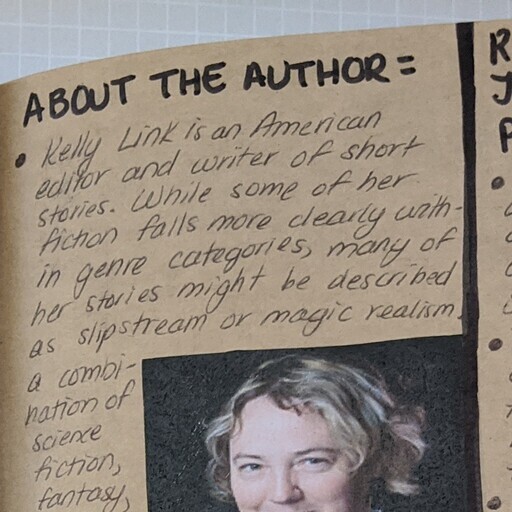 ABOUT THE AUTHOR =
• Kelly Link is an American
editor and writer of short
stories. While some of her
fiction falls more clearly with-
in genre categories, many of
her stories might be described
as slipstream or magic realism,
a combi-
nation of
science
fiction,
fantasy,
R
J
P